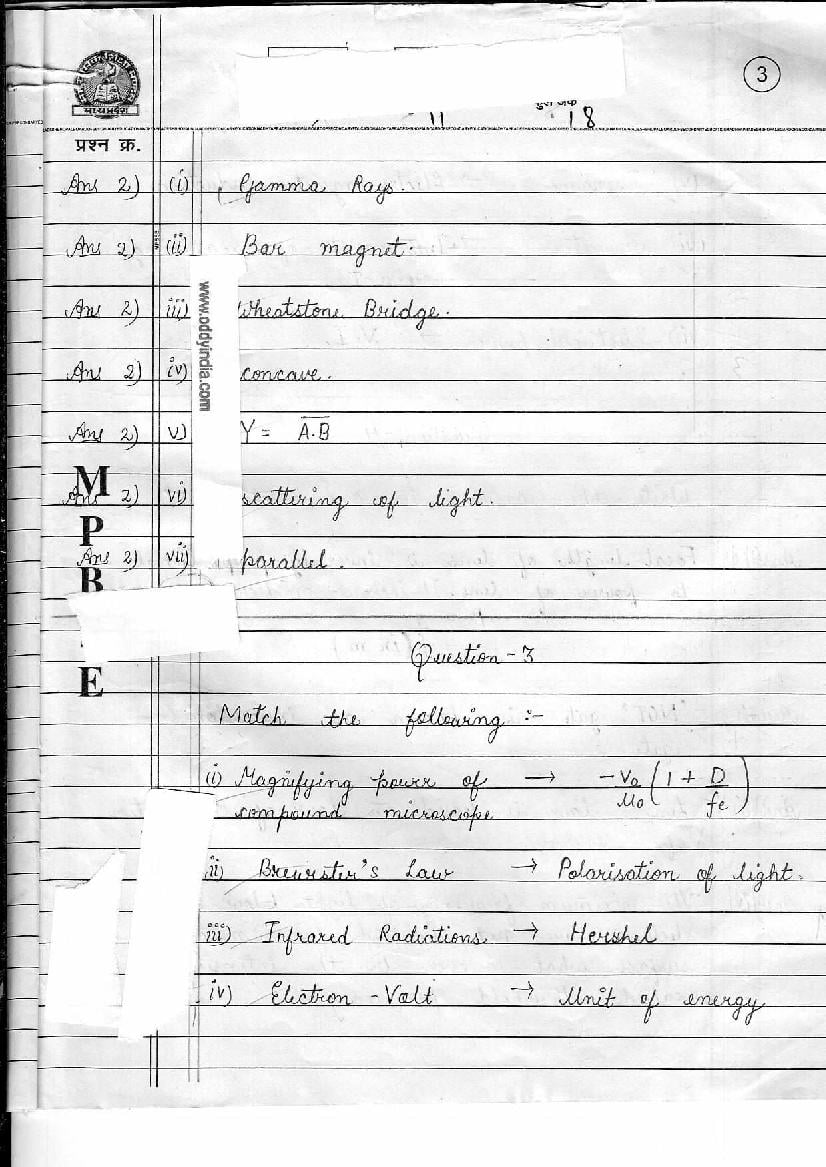 3
11
18
मध्यप्रदेश
प्रश्न क्र.
Ans 2) (i) Gamma Rays.
Ans 2) (ii) Bar magnet.
Ans 2) iii) Wheatstone Bridge.
Ans 2) iv) concave.
Ans 2) v) Y = \overline{A.B}
Ans 2) vi) scattering of light.
Ans 2) vii) parallel.
www.oddyindia.com
M
P
B
E
Question - 3
Match the following :-
(i) Magnifying power of → -Vo/Uo (1 + D/fe)
compound microscope
ii) Brewster's Law → Polarisation of light.
iii) Infrared Radiations → Hershel
iv) Electron - Valt → Unit of energy